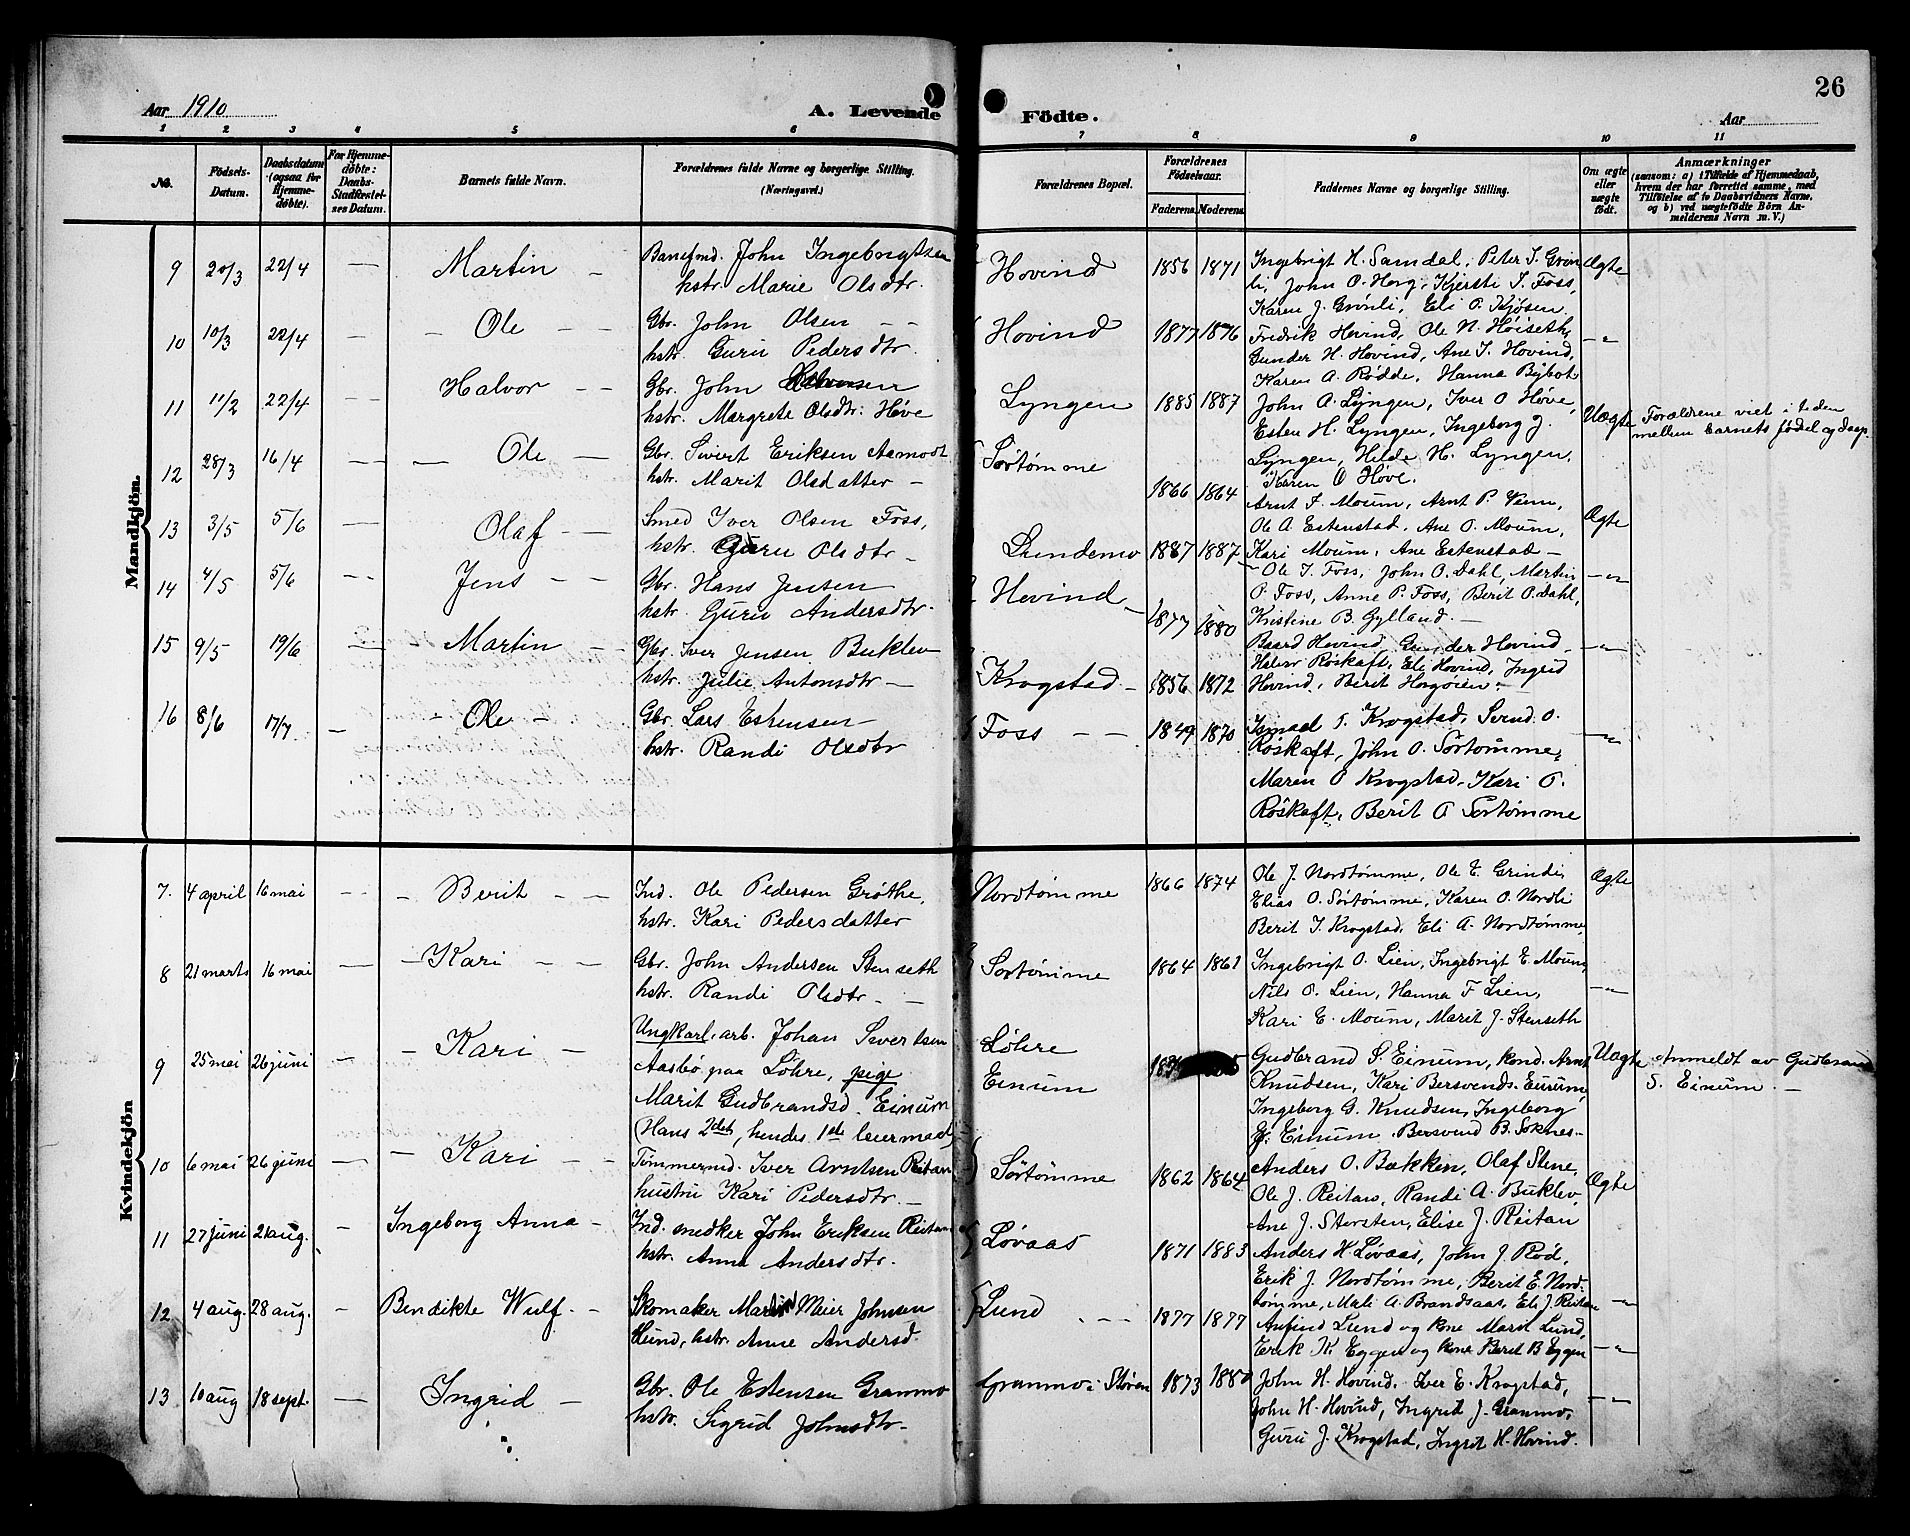 26
Aar 1910
A. Levende Födte.
Aar
1 2 3 4 5 6 7 8 9 10 11
No.
Födsels-
Datum.
Daabsdatum
(ogsaa for
Hjemme-
döbte).
For Hjemme-
døbte:
Daabs-
Stadfæstel-
ses Datum.
Barnets fulde Navn.
Forældrenes fulde Navne og borgerlige Stilling.
(Næringsvei.)
Forældrenes Bopæl.
Forældrenes
Födselsaar.
Faderens. Moderens.
Faddernes Navne og borgerlige Stilling.
Om ægte
eller
uægte
født.
Anmærkninger
(saasom: a) i Tilfælde af Hjemmedaab,
hvem der har forrettet samme, med
Tilføielse af to Daabsvidners Navne,
og b) ved uægtefødte Börn An-
melderens Navn m. V.)
Mandkjön.
9 20/3 22/4 — Martin —
Banefmd. John Ingebrigtsen
hstr. Marie Olsdtr.
Hovind 1856 1871
Ingebrigt H. Samdal, Peter I. Grøn-
li, John O. Horg, Kjersti I. Foss,
Karen J. Grønli, Eli P. Kjøsen.
Ægte
10 10/3 22/4 — Ole — —
Gbr. John Olsen — —
hstr. Guru Pedersdtr.
Hovind 1877 1876
Fredrik Hovind, Ole N. Høiseth,
Gunder H. Hovind, Ane I. Hovind,
Karen A. Rødde, Hanna Bybot
—"—
11 11/2 22/4 — Halvor — —
Gbr. John
hstr. Margrete Olsdtr. Høve
Lyngen 1885 1887
John A. Lyngen, Iver O Høve,
Esten H. Lyngen, Ingeborg J.
Lyngen, Hilde H. Lyngen,
Karen O Høve.
Uægte
Forældrene viet i tiden
mellem barnets fødsel og daap.
12 28/3 16/4 — Ole —
Gbr. Sivert Eriksen Aamodt
hstr. Marit Olsdatter —
Sørtømme 1866 1864
Arnt I. Moum, Arnt P. Venn,
Ole A. Estenstad, Ane O. Moum,
Kari Moum, Ane Estenstad —
Ægte
13 3/5 5/6 — Olaf —
Smed Iver Olsen Foss,
hstr. Guru Olsdtr —
Lundemo 1887 1887
Ole I. Foss, John O. Dahl, Martin
P. Foss, Anne P. Foss, Berit O. Dahl,
Kristine B. Gylland. —
—"—
14 4/5 5/6 — Jens — —
Gbr. Hans Jensen
hstr. Guru Andersdtr.
Hovind — 1877 1880
Baard Hovind, Gunder Hovind,
Halvor Røskaft, Eli Hovind, Ingrid
Hovind, Berit Horgøien —
—"—
15 9/5 19/6 — Martin — —
Gbr. Iver Jensen Buklev
hstr. Julie Antonsdtr —
Krogstad — 1856 1872
Ismael I. Krogstad, Svend O.
Røskaft, John O. Sørtømme,
Maren O Krogstad, Kari O.
Røskaft, Berit O Sørtømme
—"—
16 8/6 17/7 — Ole —
Gbr. Lars Estensen
hstr. Randi Olsdtr
Foss — — 1849 1870
Kvindekjön
7. 4 april 16 mai — Berit — —
Ind. Ole Pedersen Grøthe,
hstr. Kari Pedersdatter
Nordtømme 1866 1874
Ole J. Nordtømme, Ole E. Grindi,
Elias O. Sørtømme, Karen O. Nordli
Berit I. Krogstad, Eli A. Nordtømme
Ægte
8 21 marts 16 mai — Kari — —
Gbr. John Andersen Stenseth
hstr. Randi Olsdtr. —
Sørtømme 1864 1861
Ingebrigt O. Lien, Ingebrigt E. Moum,
Nils O. Lien, Hanna F Lien,
Kari E. Moum, Marit J. Stenseth
—"—
9 25 mai 26 juni — Kari —
Ungkarl, arb. Johan Sivertsen
Aasbø paa Løhre, pige
Marit Gudbrandsd. Einum
(Hans 2det, hendes 1ste leiermaal)
Løhre
Einum
Gudbrand S. Einum, kond. Arnt
Knudsen, Kari Bersvends. Eurum,
Ingeborg G. Knudsen, Ingeborg
G. Einum. Bersvend B. Soknes —
Uægte
Anmeldt av Gudbrand
S. Einum. —
10 6 mai 26 juni — Kari — —
Tømmermd. Iver Arntsen Reitan
hustru Kari Pedersdtr. —
Sørtømme 1862 1864
Anders O. Bakken, Olaf Stene,
Ole J. Reitan, Randi A. Buklev,
Ane J. Storsten, Elise J. Reitan
Ægte
11 27 juni 21 aug. — Ingeborg Anna —
Ind. snedker John Eriksen Reitan
hstr. Anna Andersdtr.
Løvaas 1871 1883
Anders H Løvaas, John J. Rød,
Erik J. Nordtømme, Berit E. Nord-
tømme, Mali A. Brandsaas, Eli J. Reitan
—"—
12 4 aug. 28 aug. — Bendikte Wulf. —
Skomaker Martin Meier Johnsen
Lund, hstr. Anne Andersd.
Lund 1877 1877
Anfind Lund og kone Marit Lund,
Erik K. Eggen og kone Berit B Eggen
—"—
13 10 aug 18 sept. — Ingrid —
Gbr. Ole Estensen Granmo
hstr. Sigrid Johnsdtr.
Granmo i Støren 1873 1880
John H. Hovind. Iver E. Krogstad,
John H. Hovind, Ingrid J. Granmo,
Guru J. Krogstad, Ingrit H. Hovind.
—"—